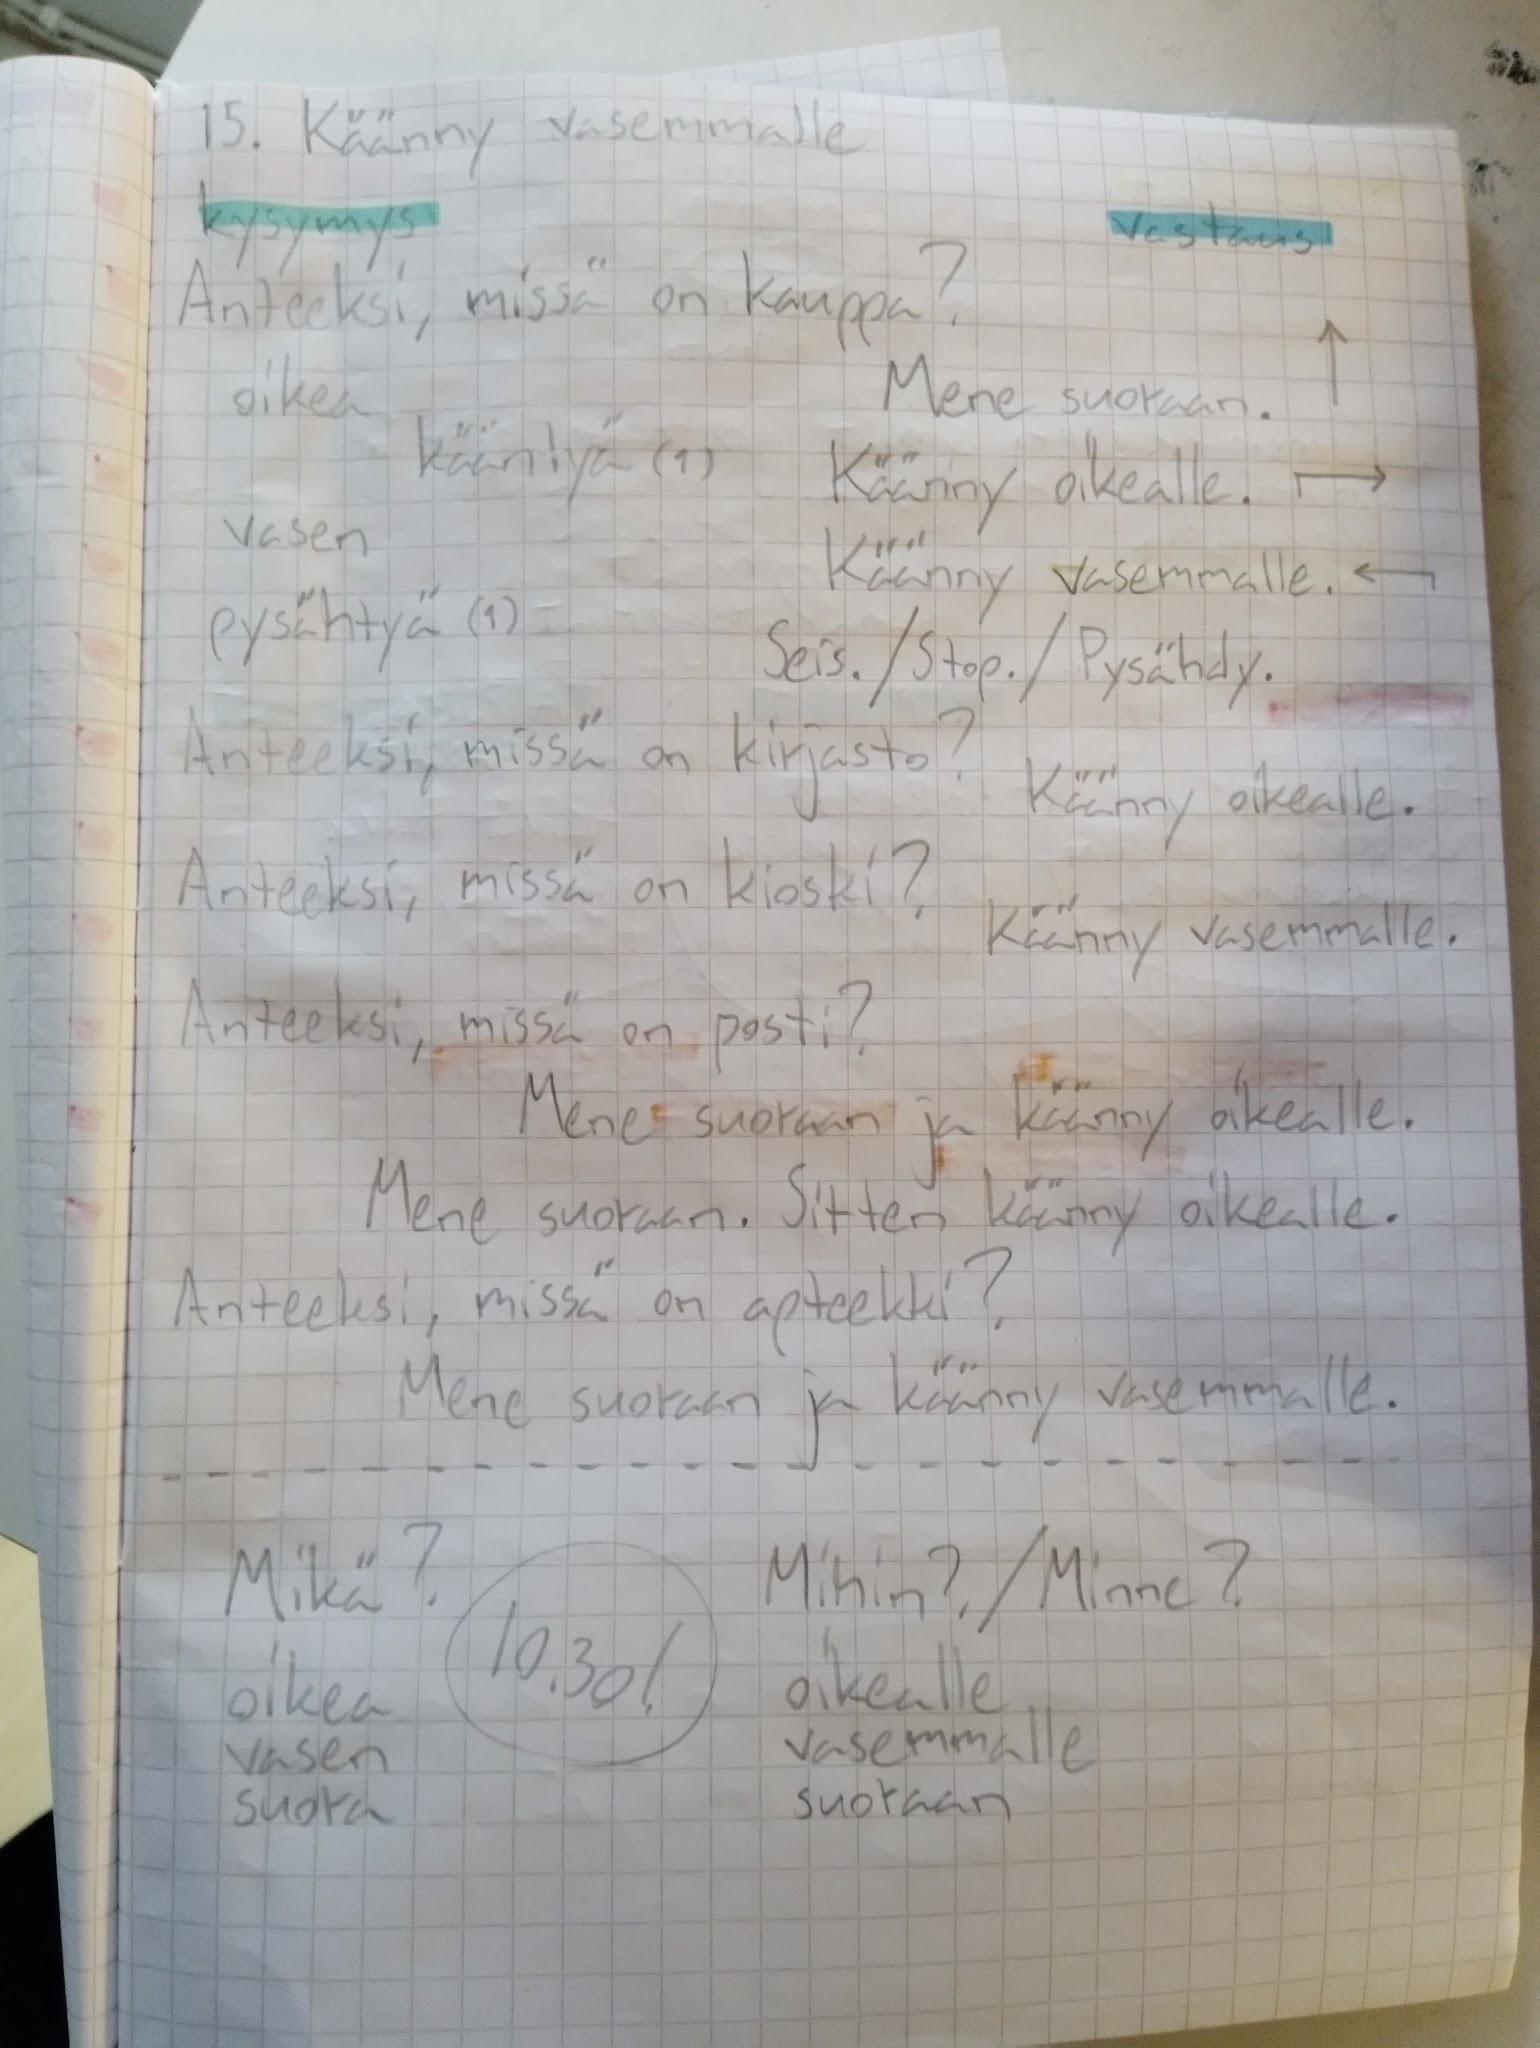 15. Käänny vasemmalle
kysymys vastaus
Anteeksi, missä on kauppa?
oikea Mene suoraan. ↑
kääntyä (1) Käänny oikealle. →
vasen Käänny vasemmalle. ←
pysähtyä (1) Seis./Stop./Pysähdy.
Anteeksi, missä on kirjasto?
Käänny oikealle.
Anteeksi, missä on kioski?
Käänny vasemmalle.
Anteeksi, missä on posti?
Mene suoraan ja käänny oikealle.
Mene suoraan. Sitten käänny oikealle.
Anteeksi, missä on apteekki?
Mene suoraan ja käänny vasemmalle.
Mikä? Mihin?/Minne?
10.30!
oikea oikealle
vasen vasemmalle
suora suoraan